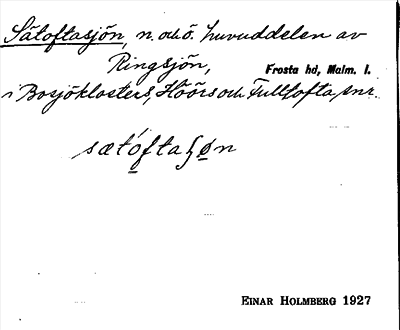 Sätoftasjön, n. och ö. huvuddelen av
Ringsjön, Frosta hd, Malm. l.
i Bosjöklosters, Höörs och Fulltofta snr.
sætoftaʃøn
EINAR HOLMBERG 1927